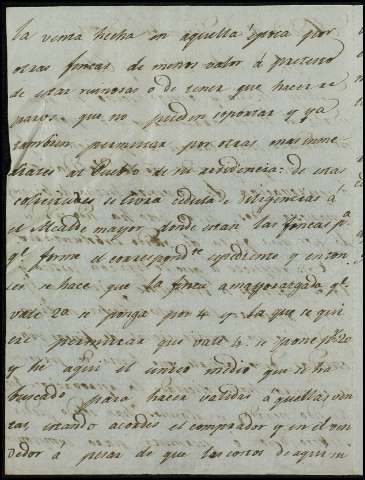 la venta hecha en aquella epoca por
otras fincas de menos valor á pretexto
de estar ruinosas ó de tener que hacer re
paros que no pueden soportar y ya
tambien permutar por otras mas inme
diatas al Pueblo de su residencia: de estas
se libra cedula de diligencias á
el Alcalde mayor donde estan las fincas pª
qᵉ forme el correspondᵗᵉ espediente y enton
ces se hace que la finca amayorazgada qᵉ
vale 20 se ponga por 4 y la que se qui
ere permutar que vale 4. se pone pʳ 20
y he aqui el unico medio que se ha
buscado para hacer validas aquellas ven
tas, estando acordes el comprador y en el ven
dedor a pesar de que las costos de aqui